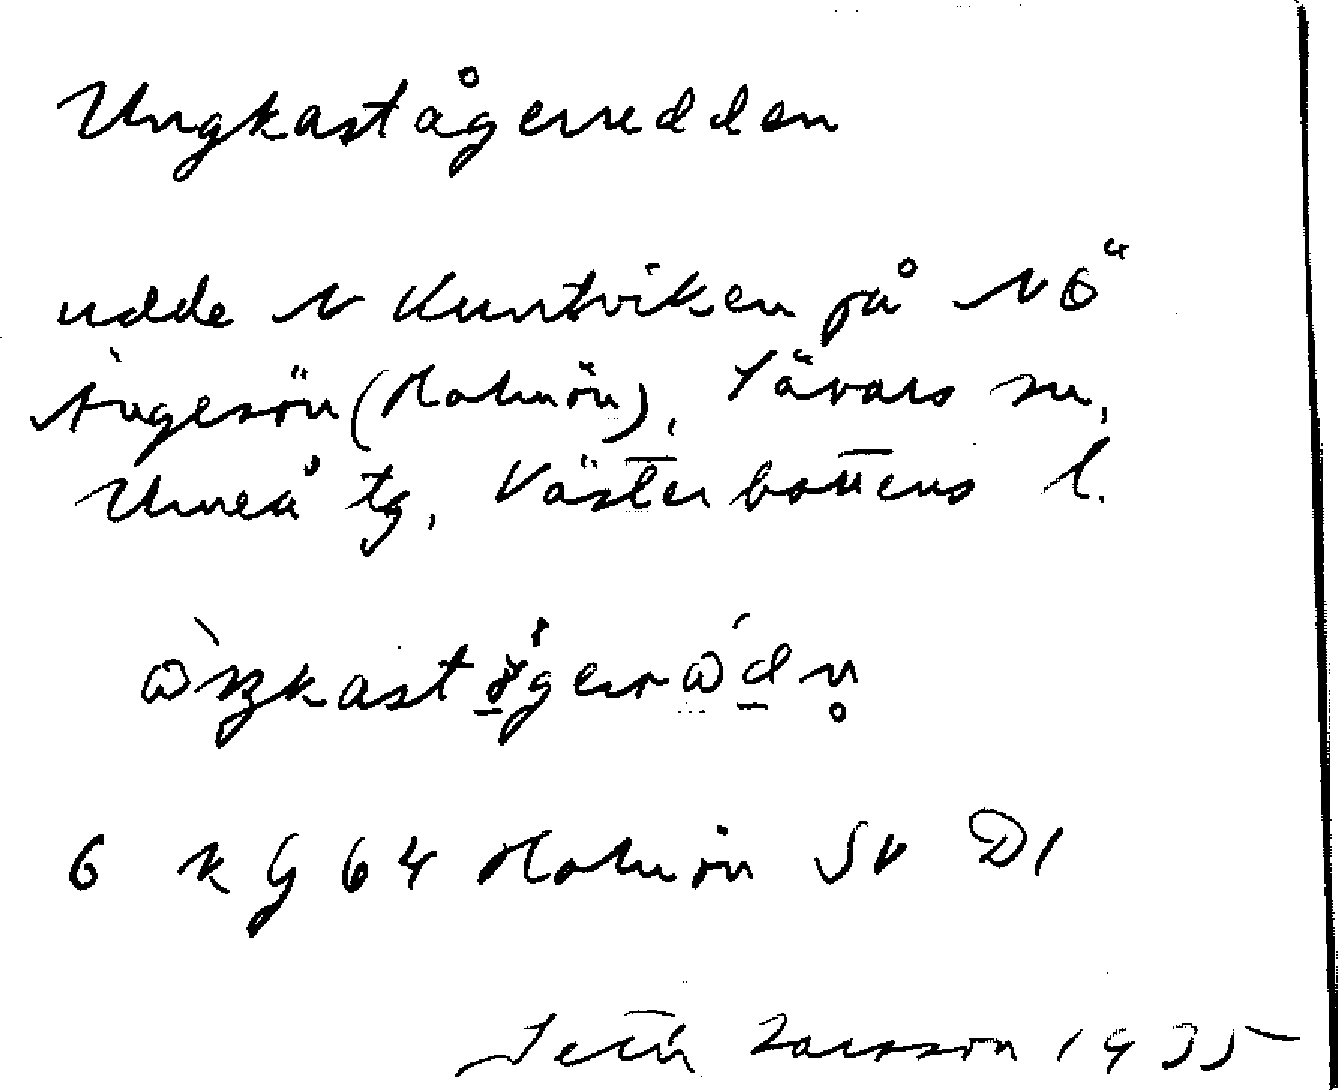 Ungkastågerudden
udde N Kuntviken på NÖ
Ängesön (Holmön), Sävars sn,
Umeå tg, Västerbottens l.
6 k G 64 Holmön SV D1
Seth Larsson 1935